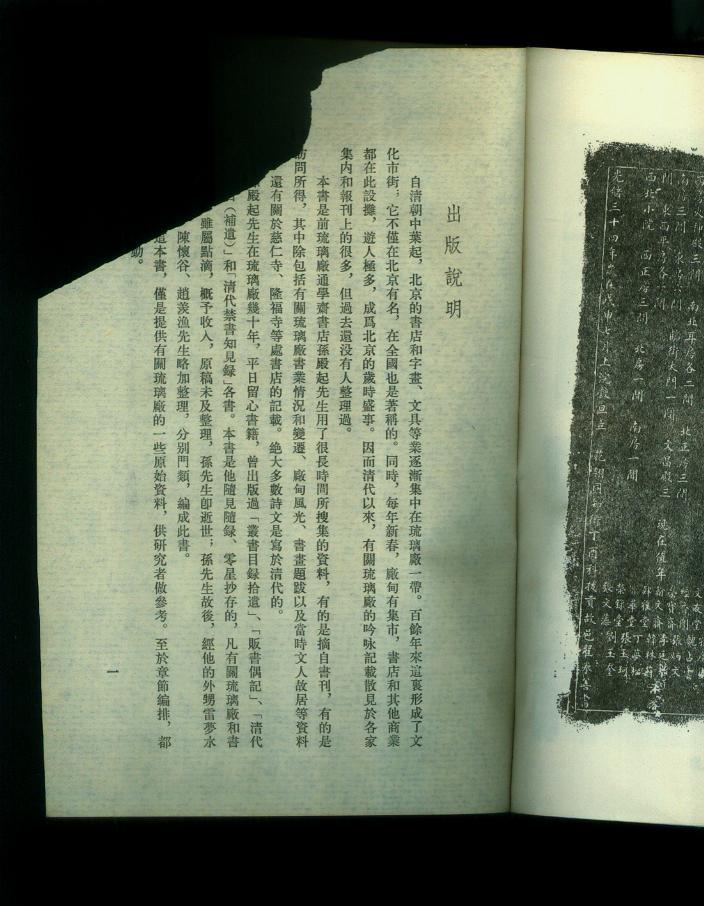 南北耳房各二間
西北小院
北房一間 南房一間
光緒三十四年歲在戊申
出版說明
自清朝中葉起，北京的書店和字畫、文具等業逐漸集中在琉璃廠一帶。百餘年來這裏形成了文
化市街，它不僅在北京有名，在全國也是著稱的。同時，每年新春，廠甸有集市，書店和其他商業
都在此設攤，遊人極多，成爲北京的歲時盛事。因而清代以來，有關琉璃廠的吟咏記載散見於各家
集內和報刊上的很多，但過去還没有人整理過。
本書是前琉璃廠通學齋書店孫殿起先生用了很長時間所搜集的資料，有的是摘自書刊，有的是
訪問所得，其中除包括有關琉璃廠書業情況和變遷、廠甸風光、書畫題跋以及當時文人故居等資料
還有關於慈仁寺、隆福寺等處書店的記載。絕大多數詩文是寫於清代的。
殿起先生在琉璃廠幾十年，平日留心書籍，曾出版過「叢書目録拾遺」、「販書偶記」、「清代
（補遺）」和「清代禁書知見録」各書。本書是他隨見隨録、零星抄存的，凡有關琉璃廠和書
雖屬點滴，概予收入，原稿未及整理，孫先生卽逝世；孫先生故後，經他的外甥雷夢水
陳懷谷、趙羨漁先生略加整理，分別門類，編成此書。
這本書，僅是提供有關琉璃廠的一些原始資料，供研究者做參考。至於章節編排，都
動。
一